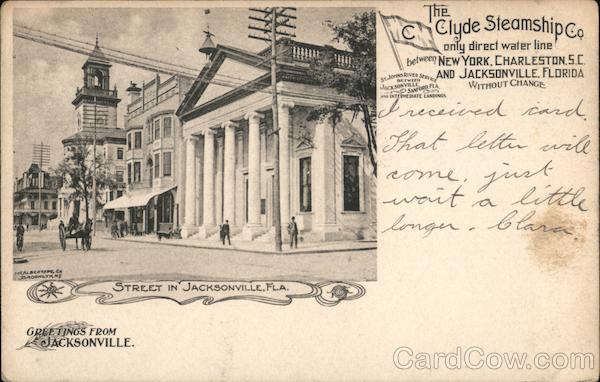 The
Clyde Steamship Co.
only direct water line
between NEW YORK, CHARLESTON, S.C.
AND JACKSONVILLE, FLORIDA
WITHOUT CHANGE
C
ST. JOHNS RIVER SERVICE
BETWEEN
JACKSONVILLE,
SANFORD, FLA.
AND INTERMEDIATE LANDINGS
I received card.
That letter will
come, just
wait a little
longer. Clara.
ALBERTYPE, CO
BROOKLYN, N.Y.
STREET IN JACKSONVILLE, FLA.
GREETINGS FROM
JACKSONVILLE.
CardCow.com